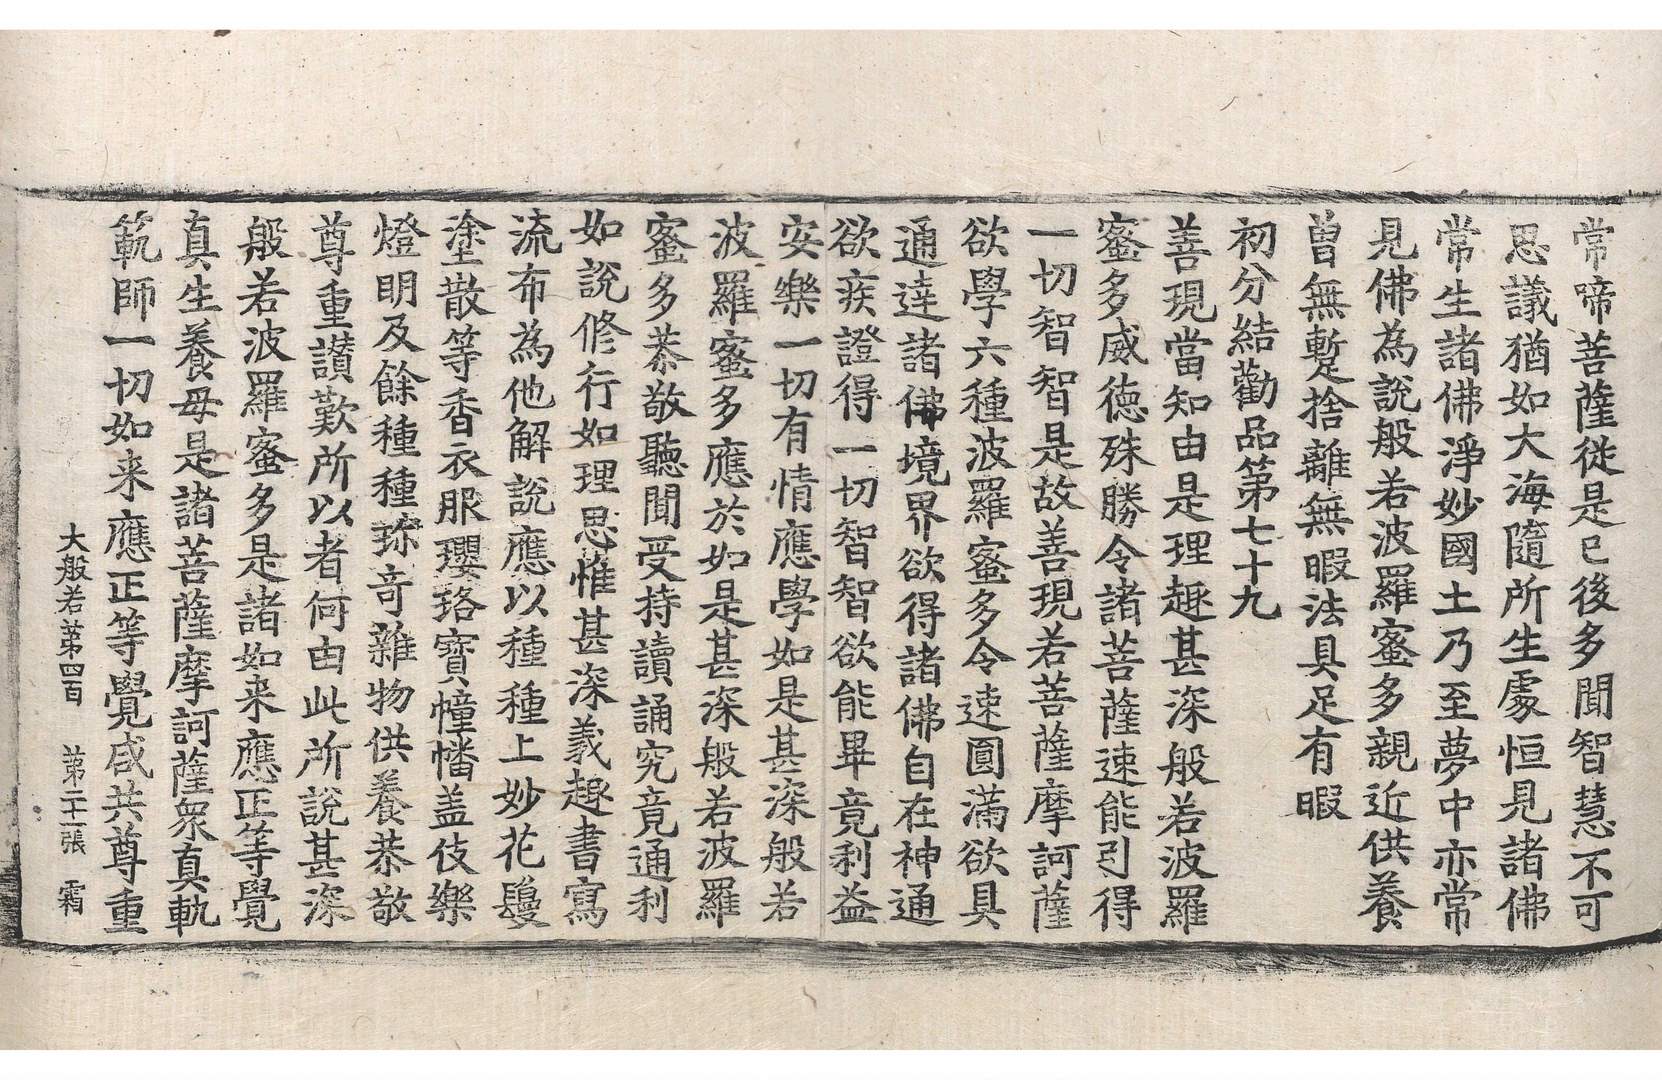 常啼菩薩從是已後多聞智慧不可
思議猶如大海隨所生處恒見諸佛
常生諸佛淨妙國土乃至夢中亦常
見佛為說般若波羅蜜多親近供養
曽無蹔捨離無暇法具足有暇
初分結勸品第七十九
善現當知由是理趣甚深般若波羅
蜜多威德殊勝令諸菩薩速能引得
一切智智是故善現若菩薩摩訶薩
欲學六種波羅蜜多令速圓滿欲具
通達諸佛境界欲得諸佛自在神通
欲疾證得一切智智欲能畢竟利益
安樂一切有情應學如是甚深般若
波羅蜜多應於如是甚深般若波羅
蜜多恭敬聽聞受持讀誦究竟通利
如說修行如理思惟甚深義趣書寫
流布為他解說應以種種上妙花鬘
塗散等香衣服瓔珞寶幢幡盖伎樂
燈明及餘種種珎竒雜物供養恭敬
尊重讃歎所以者何由此所說甚深
般若波羅蜜多是諸如来應正等覺
真生養母是諸菩薩摩訶薩衆真軌
範師一切如来應正等覺咸共尊重
大般若第四百 第二十一張 霜